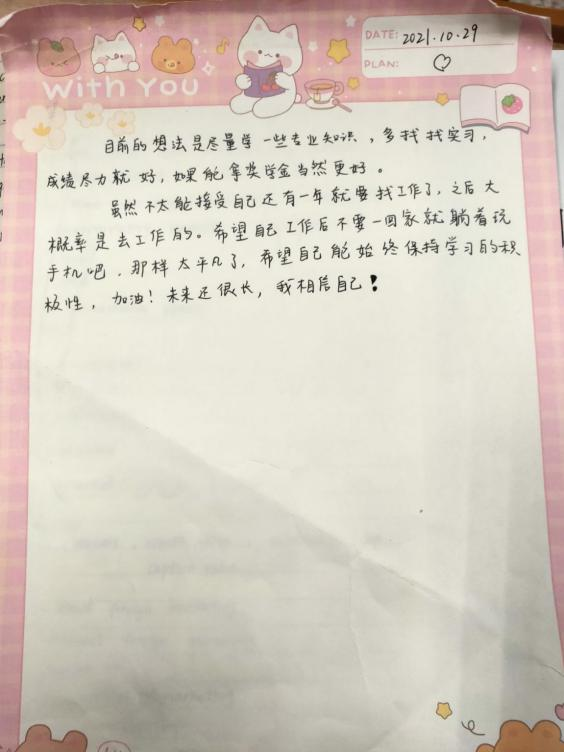 DATE: 2021.10.29
PLAN: ♡
With You
目前的想法是尽量学一些专业知识，多找找实习，
成绩尽力就好，如果能拿奖学金当然更好。
虽然不太能接受自己还有一年就要找工作了，之后大
概率是去工作的。希望自己工作后不要一回家就躺着玩
手机吧，那样太平凡了，希望自己能始终保持学习的积
极性，加油！未来还很长，我相信自己！